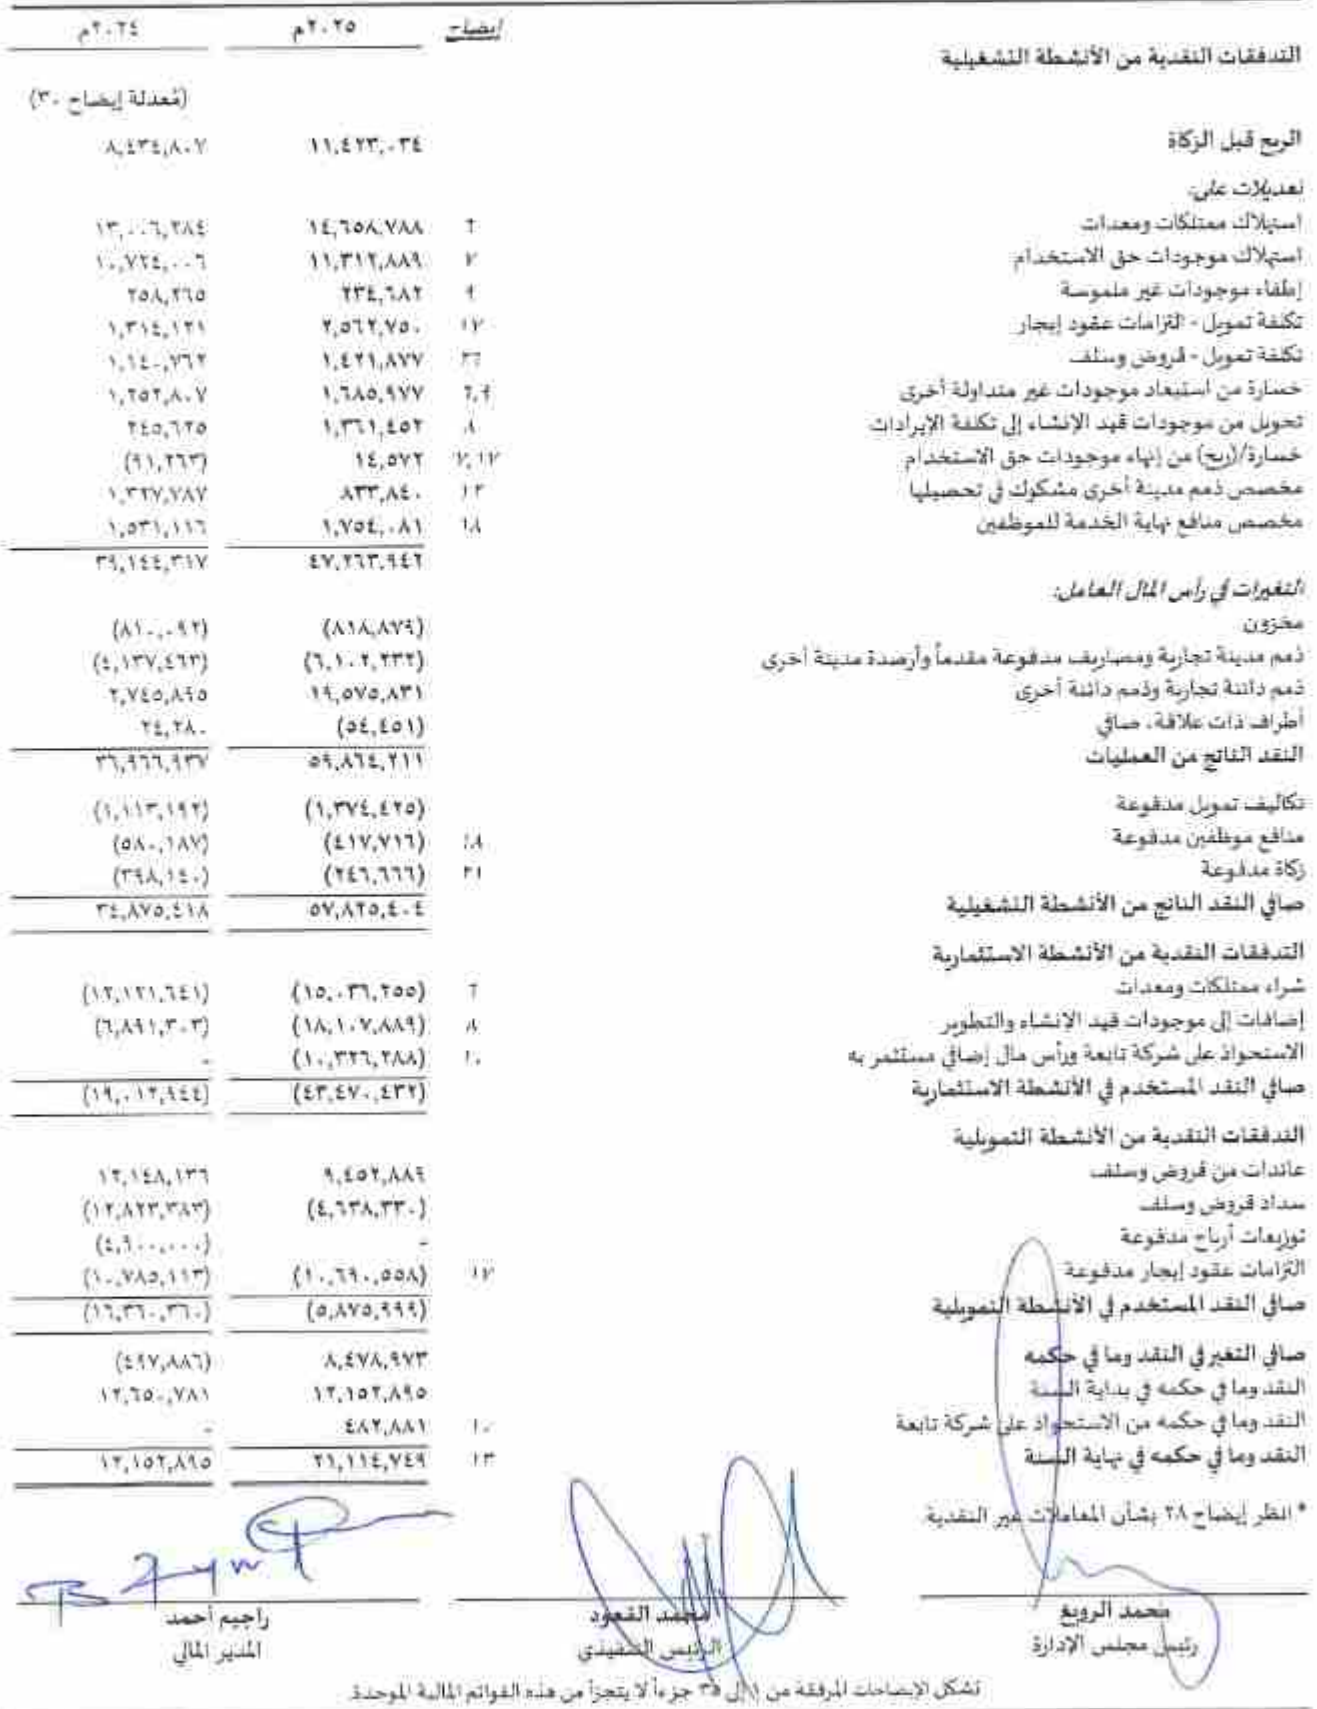 إيضاح ٢٠٢٥م ٢٠٢٤م
التدفقات النقدية من الأنشطة التشغيلية
(مُعدلة إيضاح ٣٠)
الربح قبل الزكاة ١١,٤٢٣,٠٣٤ ٨,٤٣٤,٨٠٧
تعديلات على:
استهلاك ممتلكات ومعدات ٦ ١٤,٦٥٨,٧٨٨ ١٣,٠٠٦,٢٨٤
استهلاك موجودات حق الاستخدام ٧ ١١,٣١٢,٨٨٩ ١٠,٧٢٤,٠٠٦
إطفاء موجودات غير ملموسة ٩ ٢٣٤,٦٨٢ ٢٥٨,٢٦٥
تكلفة تمويل - التزامات عقود إيجار ١٧ ٢,٥٦٢,٧٥٠ ١,٣١٤,١٢١
تكلفة تمويل - قروض وسلف ٢٦ ١,٤٢١,٨٧٧ ١,١٤٠,٧٦٢
خسارة من استبعاد موجودات غير متداولة أخرى ٦,٩ ١,٦٨٥,٩٧٧ ١,٢٥٢,٨٠٧
تحويل من موجودات قيد الإنشاء إلى تكلفة الإيرادات ٨ ١,٣٦١,٤٥٢ ٢٤٥,٦٢٥
خسارة/(ربح) من إنهاء موجودات حق الاستخدام ٧,١٧ ١٤,٥٧٢ (٩١,٢٦٣)
مخصص ذمم مدينة أخرى مشكوك في تحصيلها ١٢ ٨٣٣,٨٤٠ ١,٣٢٧,٧٨٧
مخصص منافع نهاية الخدمة للموظفين ١٨ ١,٧٥٤,٠٨١ ١,٥٣١,١١٦
٤٧,٢٦٣,٩٤٢ ٣٩,١٤٤,٣١٧
التغيرات في رأس المال العامل:
مخزون (٨١٨,٨٧٩) (٨١٠,٠٩٢)
ذمم مدينة تجارية ومصاريف مدفوعة مقدماً وأرصدة مدينة أخرى (٦,١٠٢,٢٣٢) (٤,١٣٧,٤٦٣)
ذمم دائنة تجارية وذمم دائنة أخرى ١٩,٥٧٥,٨٣١ ٢,٧٤٥,٨٩٥
أطراف ذات علاقة، صافي (٥٤,٤٥١) ٢٤,٢٨٠
النقد الناتج من العمليات ٥٩,٨٦٤,٢١١ ٣٦,٩٦٦,٩٣٧
تكاليف تمويل مدفوعة (١,٣٧٤,٤٢٥) (١,١١٣,١٩٢)
منافع موظفين مدفوعة ١٨ (٤١٧,٧١٦) (٥٨٠,١٨٧)
زكاة مدفوعة ٢١ (٢٤٦,٦٦٦) (٣٩٨,١٤٠)
صافي النقد الناتج من الأنشطة التشغيلية ٥٧,٨٢٥,٤٠٤ ٣٤,٨٧٥,٤١٨
التدفقات النقدية من الأنشطة الاستثمارية
شراء ممتلكات ومعدات ٦ (١٥,٠٣٦,٢٥٥) (١٢,١٢١,٦٤١)
إضافات إلى موجودات قيد الإنشاء والتطوير ٨ (١٨,١٠٧,٨٨٩) (٦,٨٩١,٣٠٣)
الاستحواذ على شركة تابعة ورأس مال إضافي مستثمر به ١٠ (١٠,٣٢٦,٢٨٨) -
صافي النقد المستخدم في الأنشطة الاستثمارية (٤٣,٤٧٠,٤٣٢) (١٩,٠١٢,٩٤٤)
التدفقات النقدية من الأنشطة التمويلية
عائدات من قروض وسلف ٩,٤٥٢,٨٨٩ ١٢,١٤٨,١٣٦
سداد قروض وسلف (٤,٦٣٨,٣٣٠) (١٢,٨٢٣,٣٨٣)
توزيعات أرباح مدفوعة - (٤,٩٠٠,٠٠٠)
التزامات عقود إيجار مدفوعة ١٧ (١٠,٦٩٠,٥٥٨) (١٠,٧٨٥,١١٣)
صافي النقد المستخدم في الأنشطة التمويلية (٥,٨٧٥,٩٩٩) (١٦,٣٦٠,٣٦٠)
صافي التغير في النقد وما في حكمه ٨,٤٧٨,٩٧٣ (٤٩٧,٨٨٦)
النقد وما في حكمه في بداية السنة ١٢,١٥٢,٨٩٥ ١٢,٦٥٠,٧٨١
النقد وما في حكمه من الاستحواذ على شركة تابعة ١٠ ٤٨٢,٨٨١ -
النقد وما في حكمه في نهاية السنة ١٣ ٢١,١١٤,٧٤٩ ١٢,١٥٢,٨٩٥
* انظر إيضاح ٢٨ بشأن المعاملات غير النقدية.
محمد الرويغ محمد القعود راجيم أحمد
رئيس مجلس الإدارة الرئيس التنفيذي المدير المالي
تشكل الإيضاحات المرفقة من ١ إلى ٣٥ جزءاً لا يتجزأ من هذه القوائم المالية الموحدة.